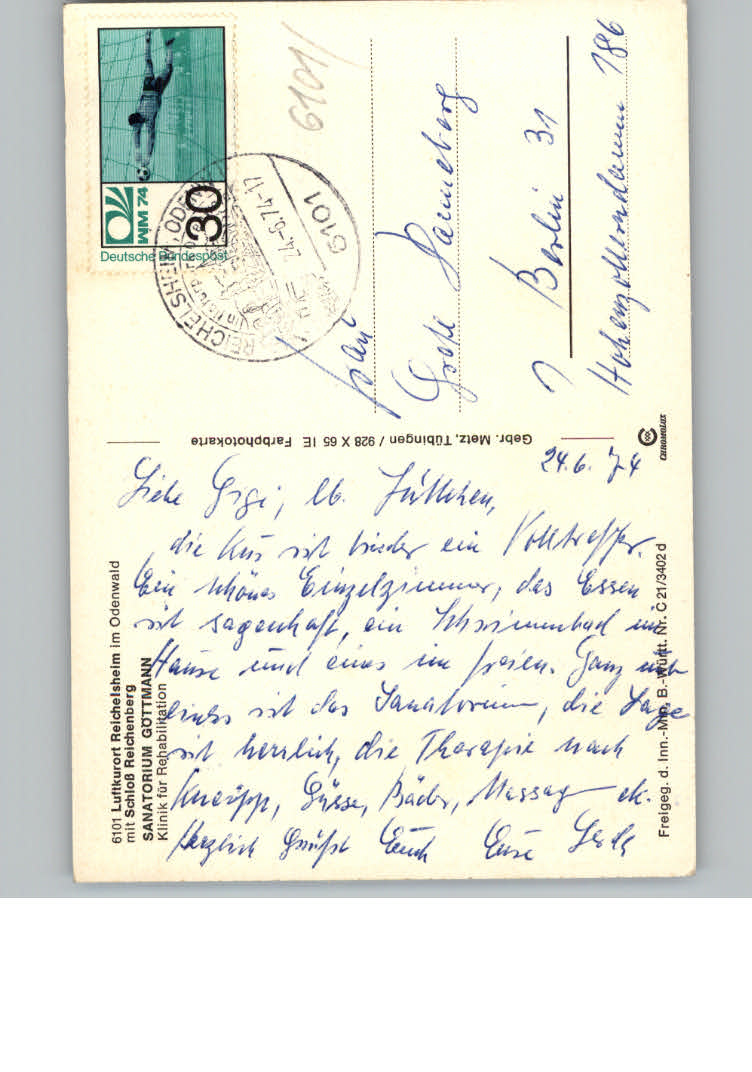 6101/
WM 74
30
Deutsche Bundespost
REICHELSHEIM, ODENW
24.-6.74-17
6101
Große
1 Berlin 31
Hohenzollerndamm 186
Gebr. Metz, Tübingen / 928 X 65 IE Farbphotokarte
CHROMOLUX
24.6.74
Liebe Gigi, lb. Jüttchen,
die Kur ist wieder ein Volltreffer.
Ein schönes Einzelzimmer, das Essen
ist sagenhaft, ein Schwimmbad im
Hause und eines im Freien. Ganz
ist das Sanatorium, die Lage
ist herrlich, die Therapie nach
Kneipp, Güsse, Bäder, Massage etc.
Herzlich grüßt Euch Eure
6101 Luftkurort Reichelsheim im Odenwald
mit Schloß Reichenberg
SANATORIUM GÖTTMANN
Klinik für Rehabilitation
Freigeg. d. Inn.-Min. B.-Württ. Nr. C 21/3402 d